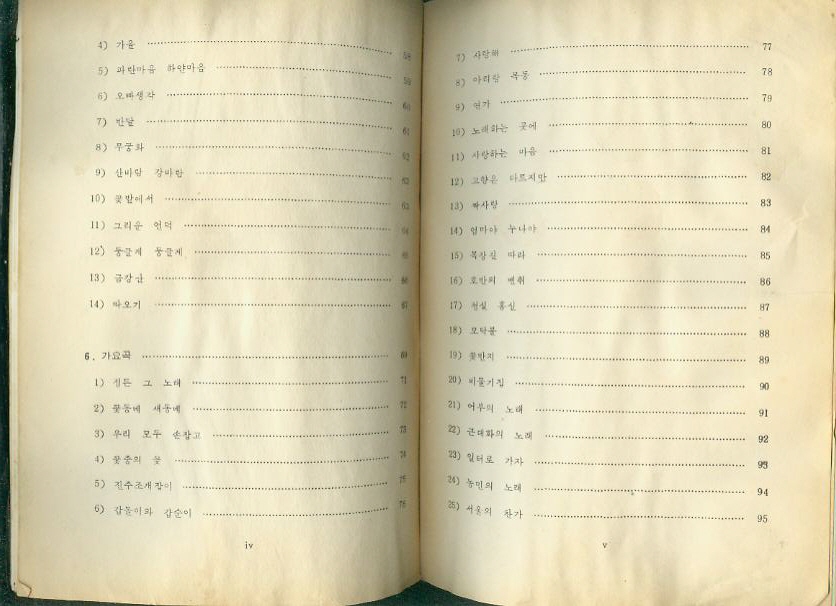 4) 가을 58
5) 파란마음 하얀마음 59
6) 오빠생각 60
7) 반달 61
8) 무궁화 62
9) 산바람 강바람 62
10) 꽃밭에서 63
11) 그리운 언덕 64
12) 둥글게 둥글게 65
13) 금강산 66
14) 따오기 67
6. 가요곡 69
1) 정든 그 노래 71
2) 꽃동네 새동네 72
3) 우리 모두 손잡고 73
4) 꽃중의 꽃 74
5) 진주조개잡이 75
6) 갑돌이와 갑순이 76
iv
7) 사랑해 77
8) 아리랑 목동 78
9) 연가 79
10) 노래하는 곳에 80
11) 사랑하는 마음 81
12) 고향은 다르지만 82
13) 짝사랑 83
14) 엄마야 누나야 84
15) 목장길 따라 85
16) 로반의 85
17) 홍실 87
18) 모닥불 88
19) 꽃반지 89
20) 비둘기집 90
21) 어부의 노래 91
22) 근대화의 노래 92
23) 일터로 가자 93
24) 농민의 노래 94
25) 서울의 찬가 95
v